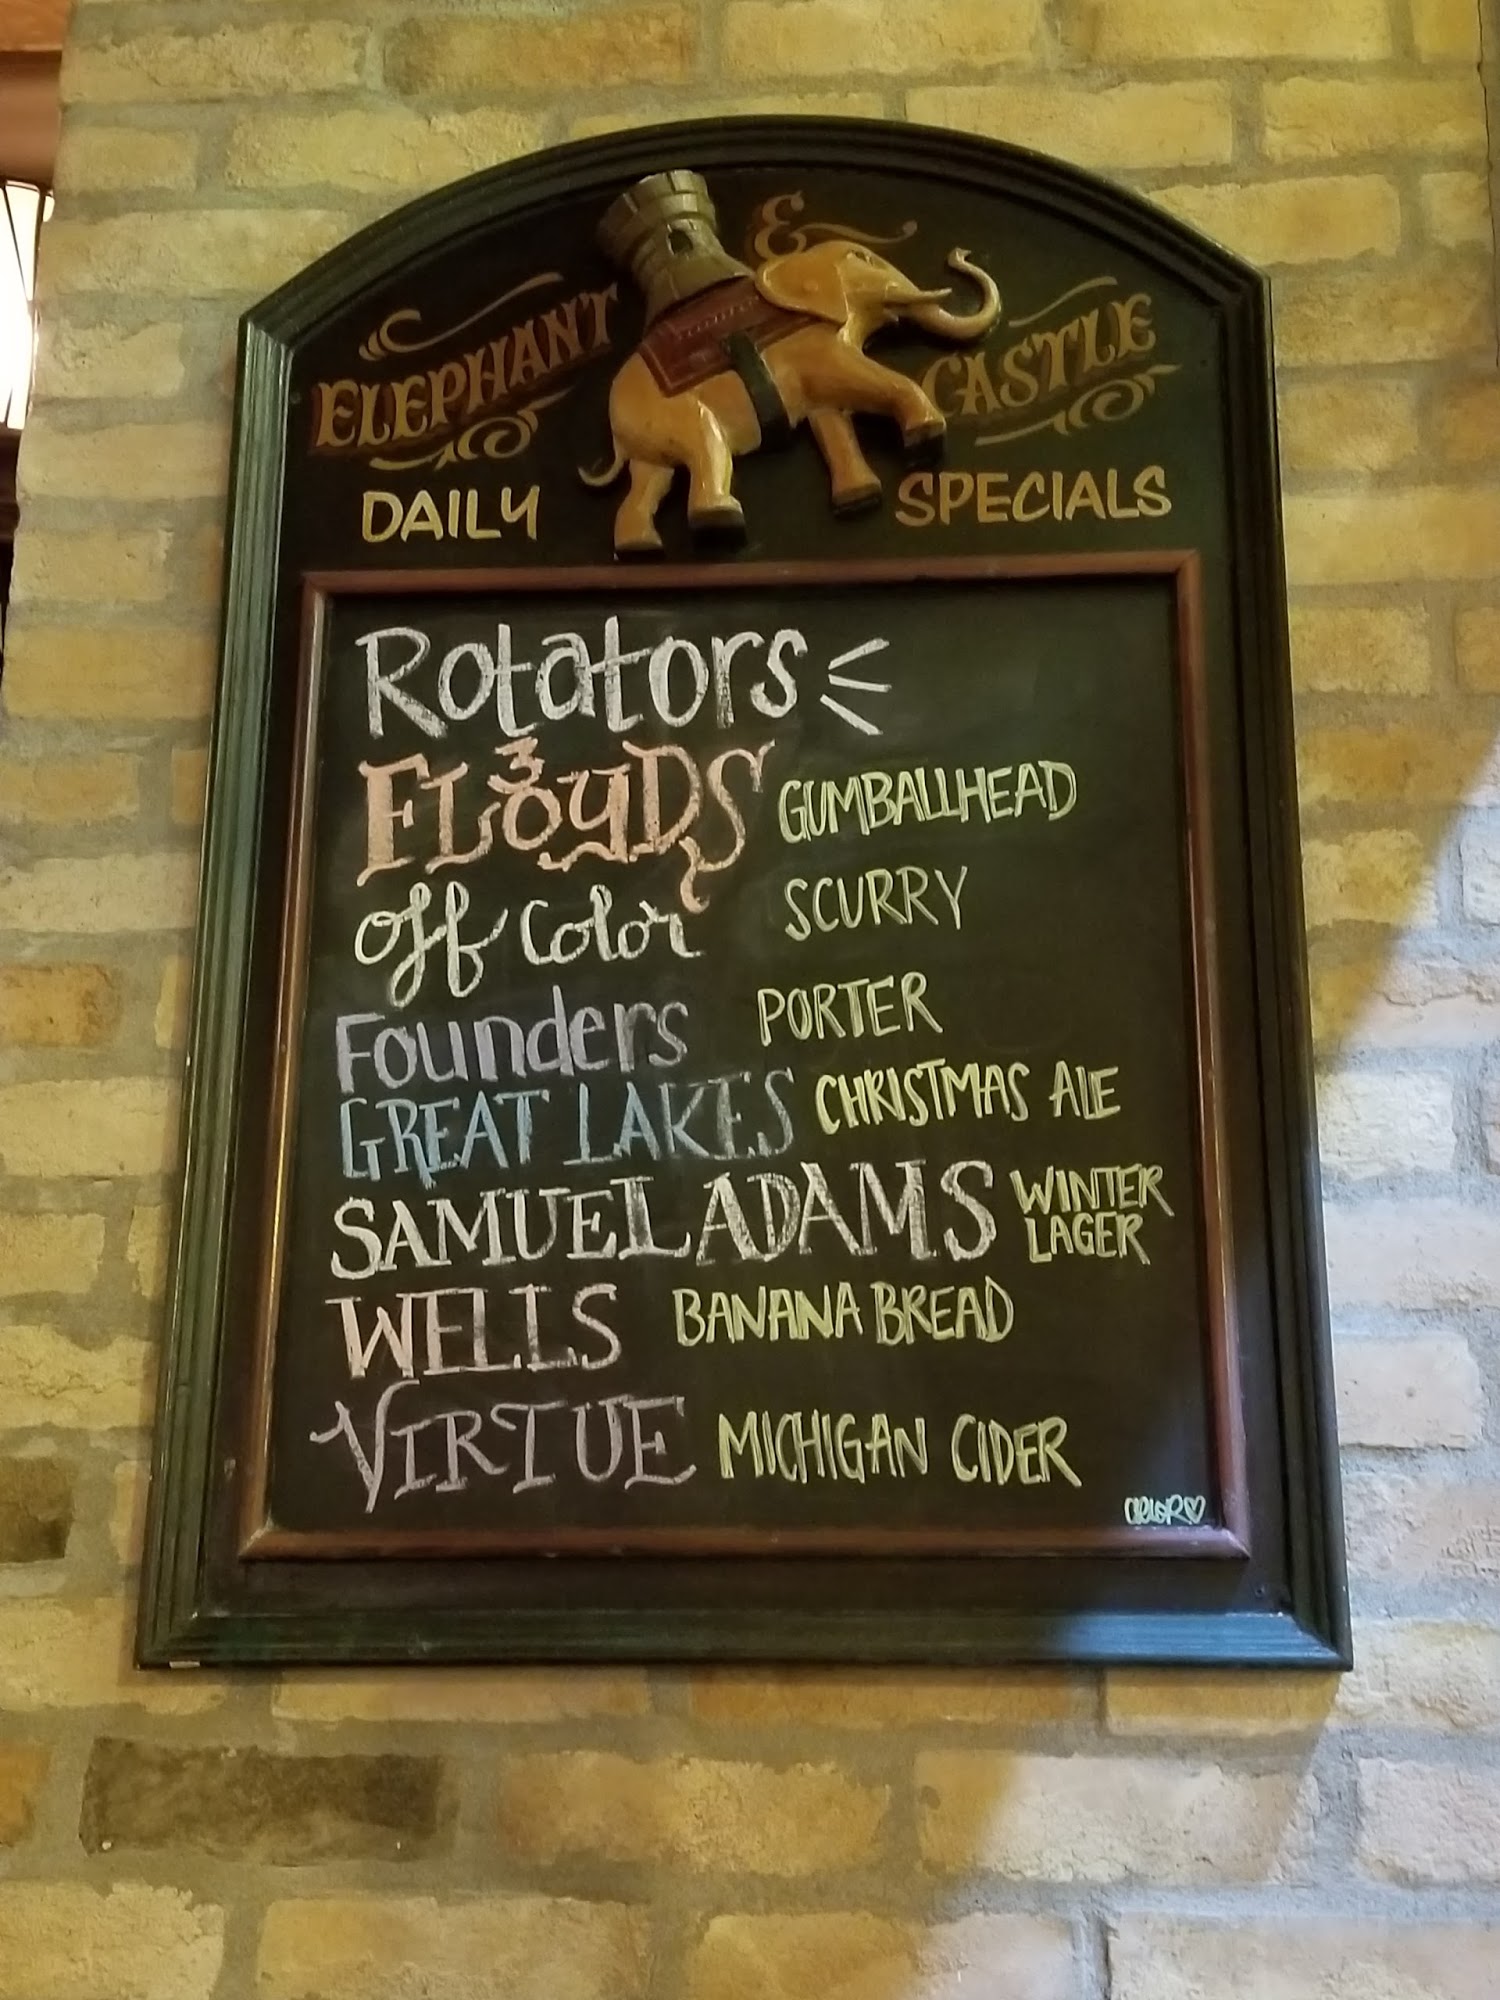 ELEPHANT & CASTLE
DAILY SPECIALS
Rotators
3 FLOYDS GUMBALLHEAD
Off Color SCURRY
Founders PORTER
GREAT LAKES CHRISTMAS ALE
SAMUEL ADAMS WINTER
LAGER
WELLS BANANA BREAD
VIRTUE MICHIGAN CIDER